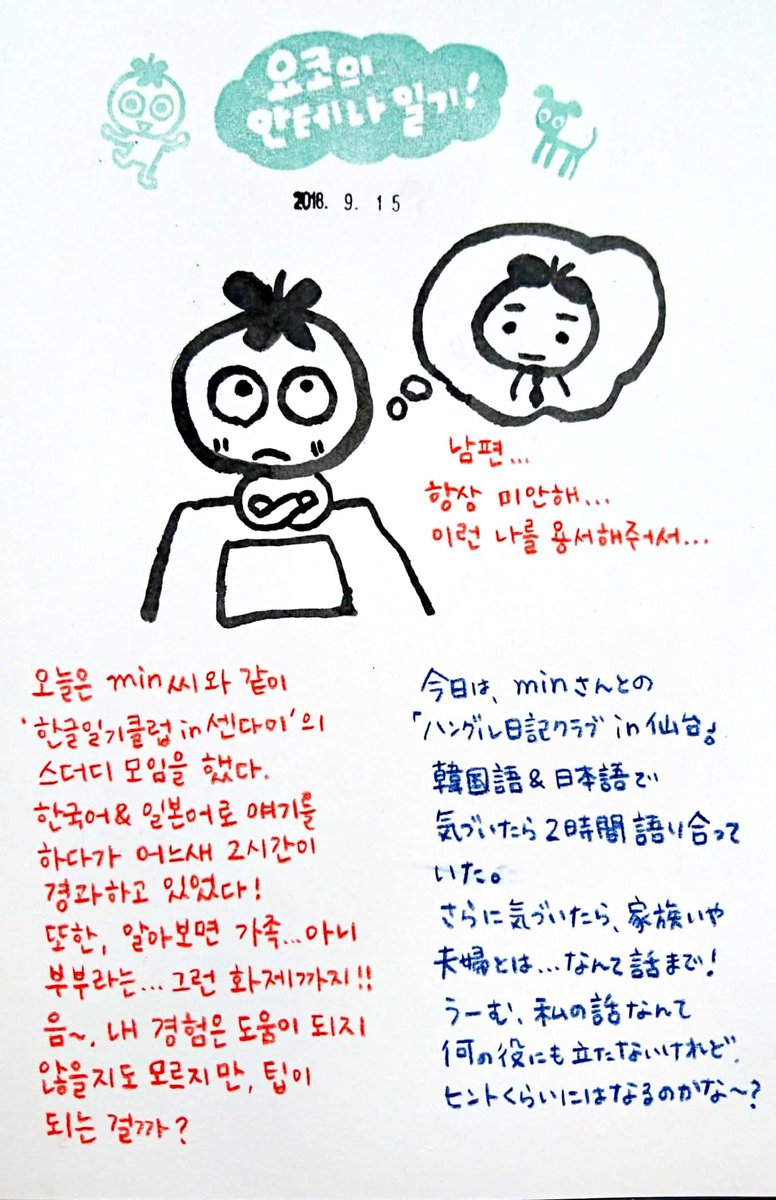 요코의
안테나 일기!
2018. 9. 15
남편...
항상 미안해...
이런 나를 용서해주어서...
오늘은 min씨와 같이
'한글일기클럽 in 센다이'의
스터디 모임을 했다.
한국어 & 일본어로 얘기를
하다가 어느새 2시간이
경과하고 있었다!
또한, 알아보면 가족...아니
부부라는...그런 화제까지!!
음~, 내 경험은 도움이 되지
않을지도 모르지만, 팁이
되는 걸까?
今日は、minさんとの
「ハングル日記クラブ in 仙台」
韓国語 & 日本語で
気づいたら2時間語り合って
いた。
さらに気づいたら、家族いや
夫婦とは...なんて話まで!
うーむ、私の話なんて
何の役にも立たないけれど、
ヒントくらいにはなるのかな〜?